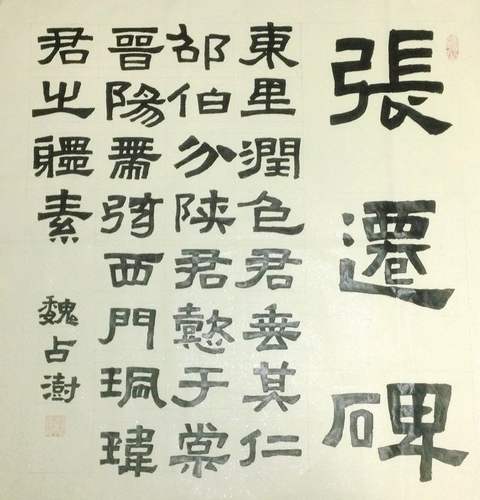 張遷碑
東里潤色君垂其仁
邵伯分陕君懿于棠
晉陽帶弦西門珮瑋
君之軆素
魏占澍